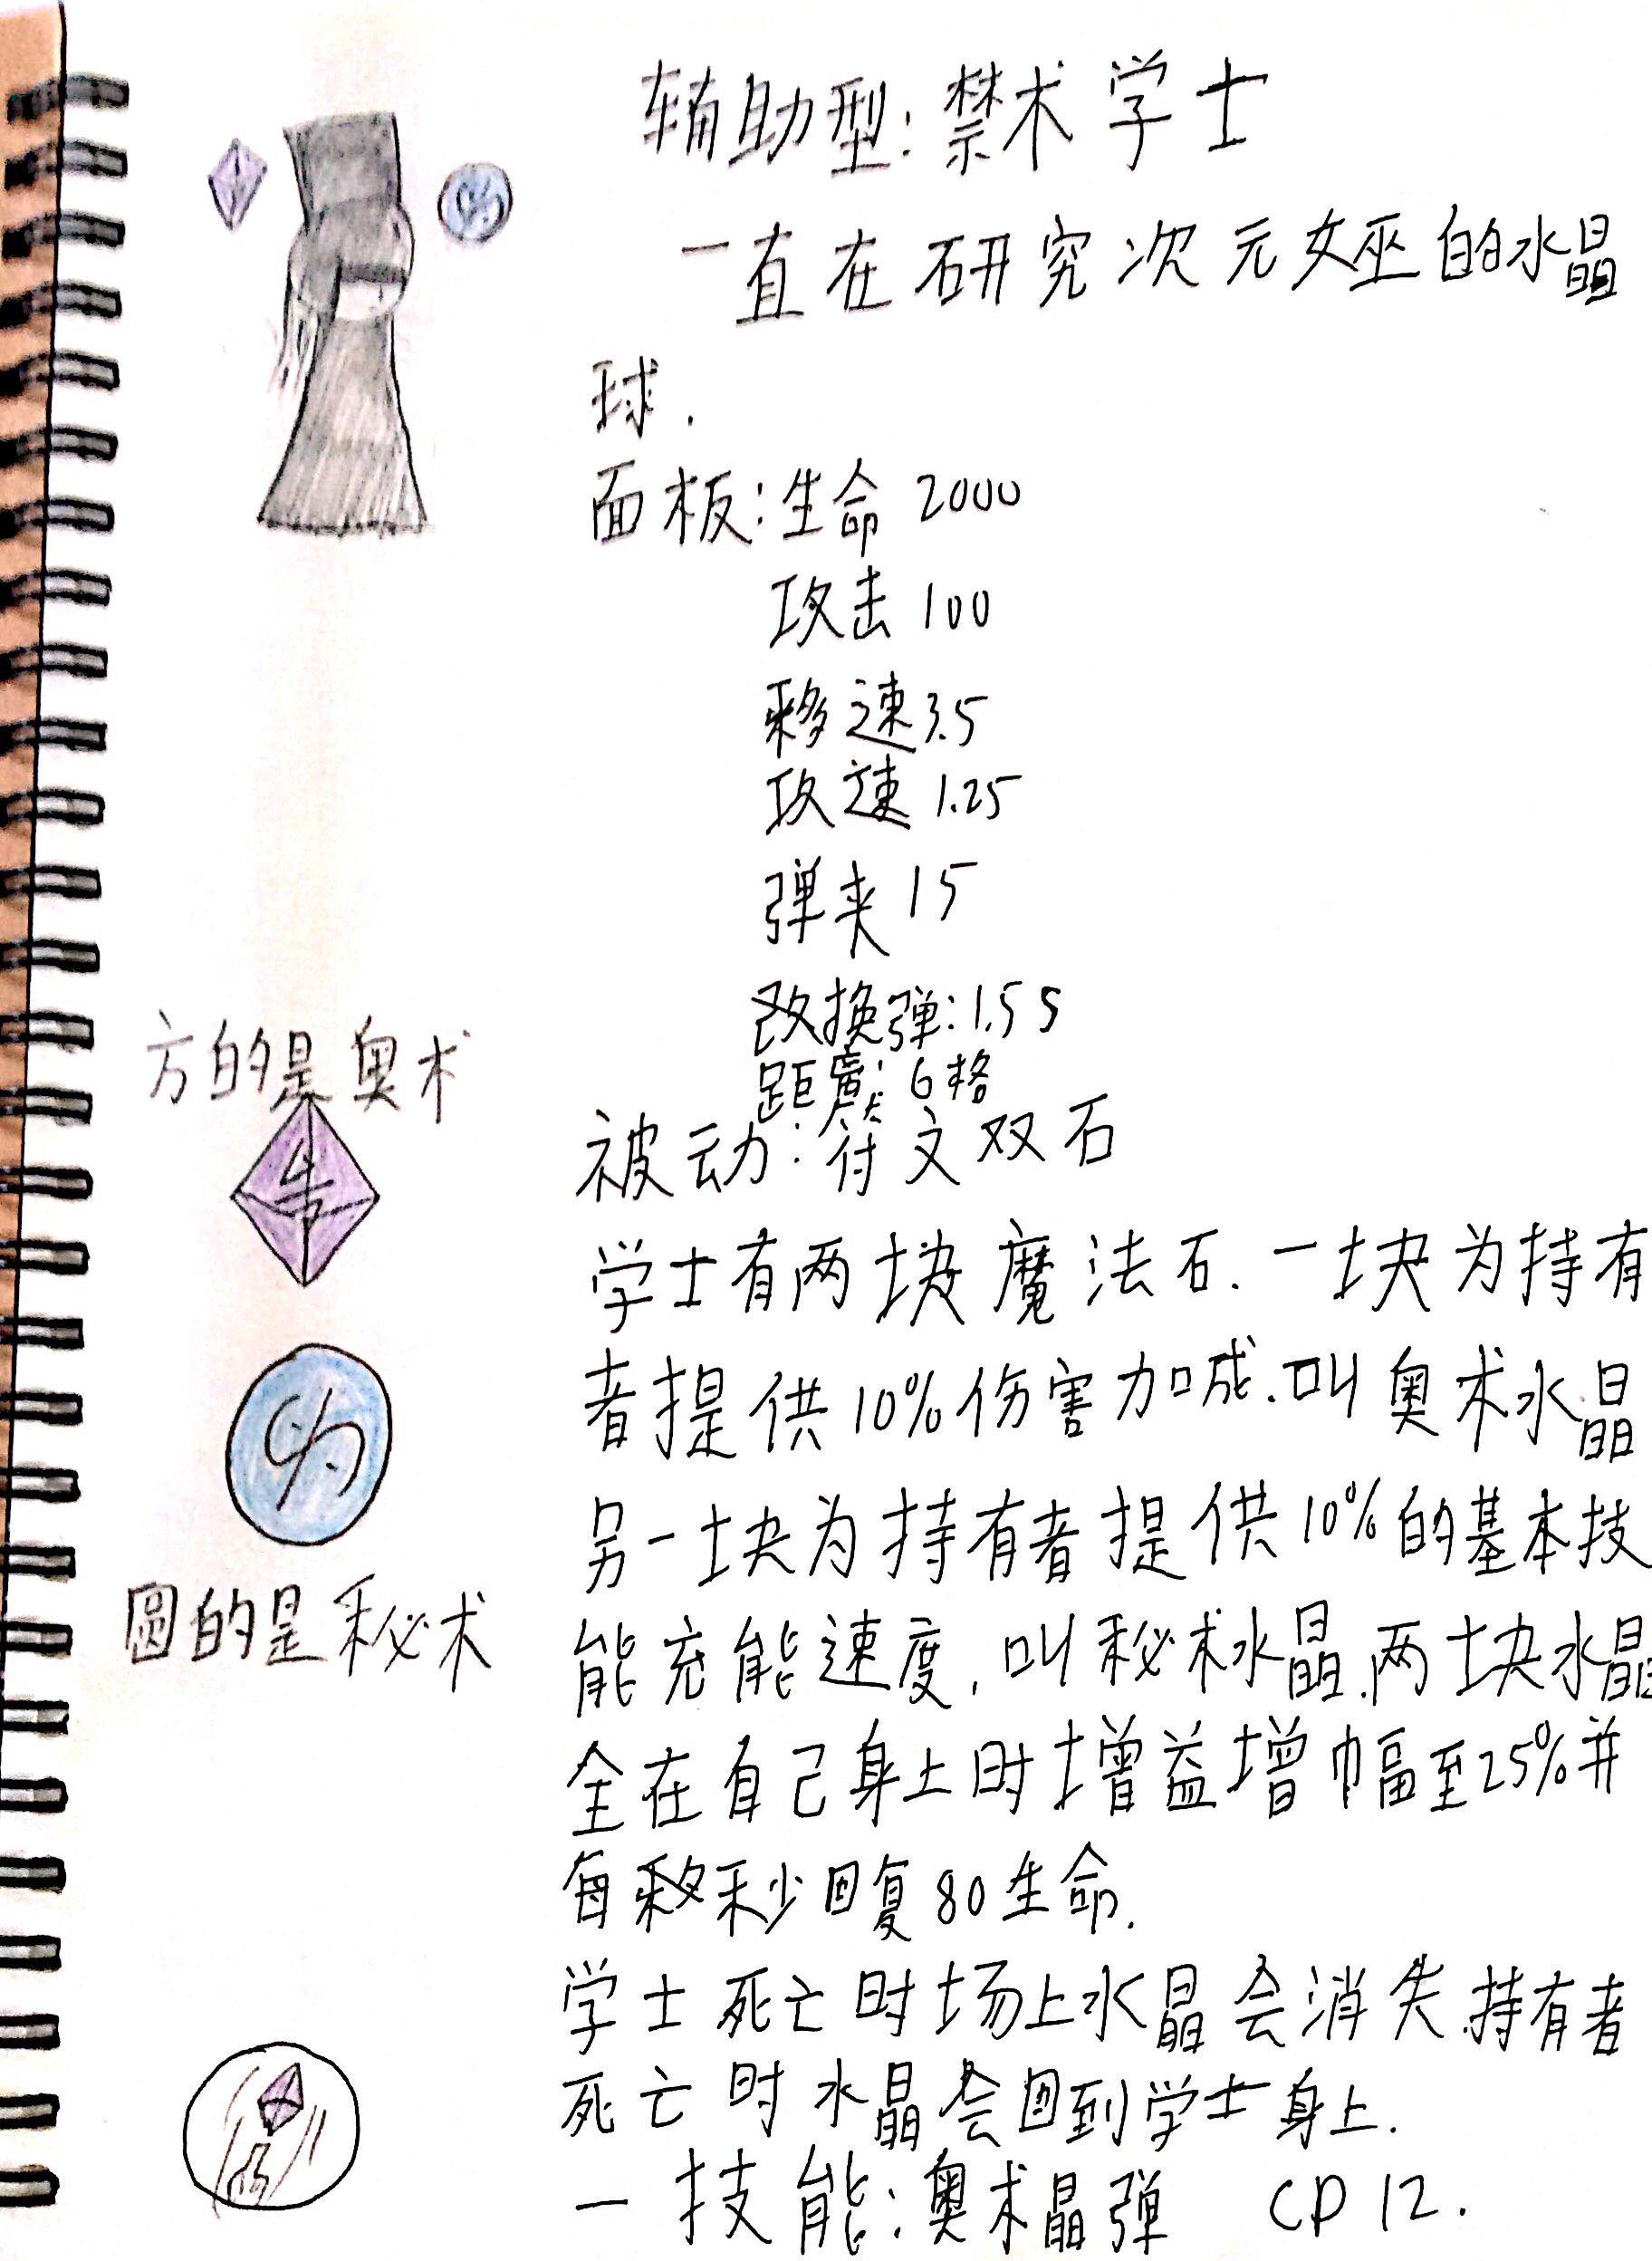 辅助型:禁术学士
一直在研究次元女巫的水晶
球.
面板:生命 2000
攻击 100
移速 3.5
攻速 1.25
弹夹 15
换弹:1.5s
距离:6格
方的是奥术
被动:符文双石
学士有两块魔法石.一块为持有
者提供10%伤害加成.叫奥术水晶
另一块为持有者提供10%的基本技
能充能速度,叫秘术水晶.两块水晶
圆的是秘术
全在自己身上时增益增幅至25%并
每秒回复80生命.
学士死亡时场上水晶会消失.持有者
死亡时水晶会回到学士身上.
一技能:奥术晶弹 CD 12.